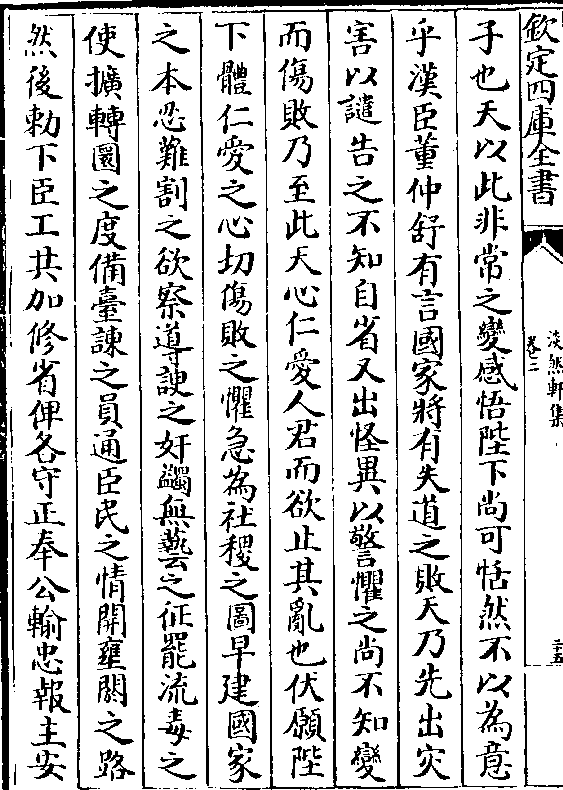 欽定四庫全書
淡然軒集
卷三
二十五
子也天以此非常之變感悟陛下尚可恬然不以為意
乎漢臣董仲舒有言國家將有失道之敗天乃先出灾
害以譴告之不知自省又出怪異以警懼之尚不知變
而傷敗乃至此天心仁愛人君而欲止其亂也伏願陛
下體仁愛之心切傷敗之懼急為社稷之圖早建國家
之本忍難割之欲察導諛之奸蠲無藝之征罷流毒之
使擴轉圜之度備臺諫之員通臣民之情開壅閼之路
然後勅下臣工共加修省俾各守正奉公輸忠報主安